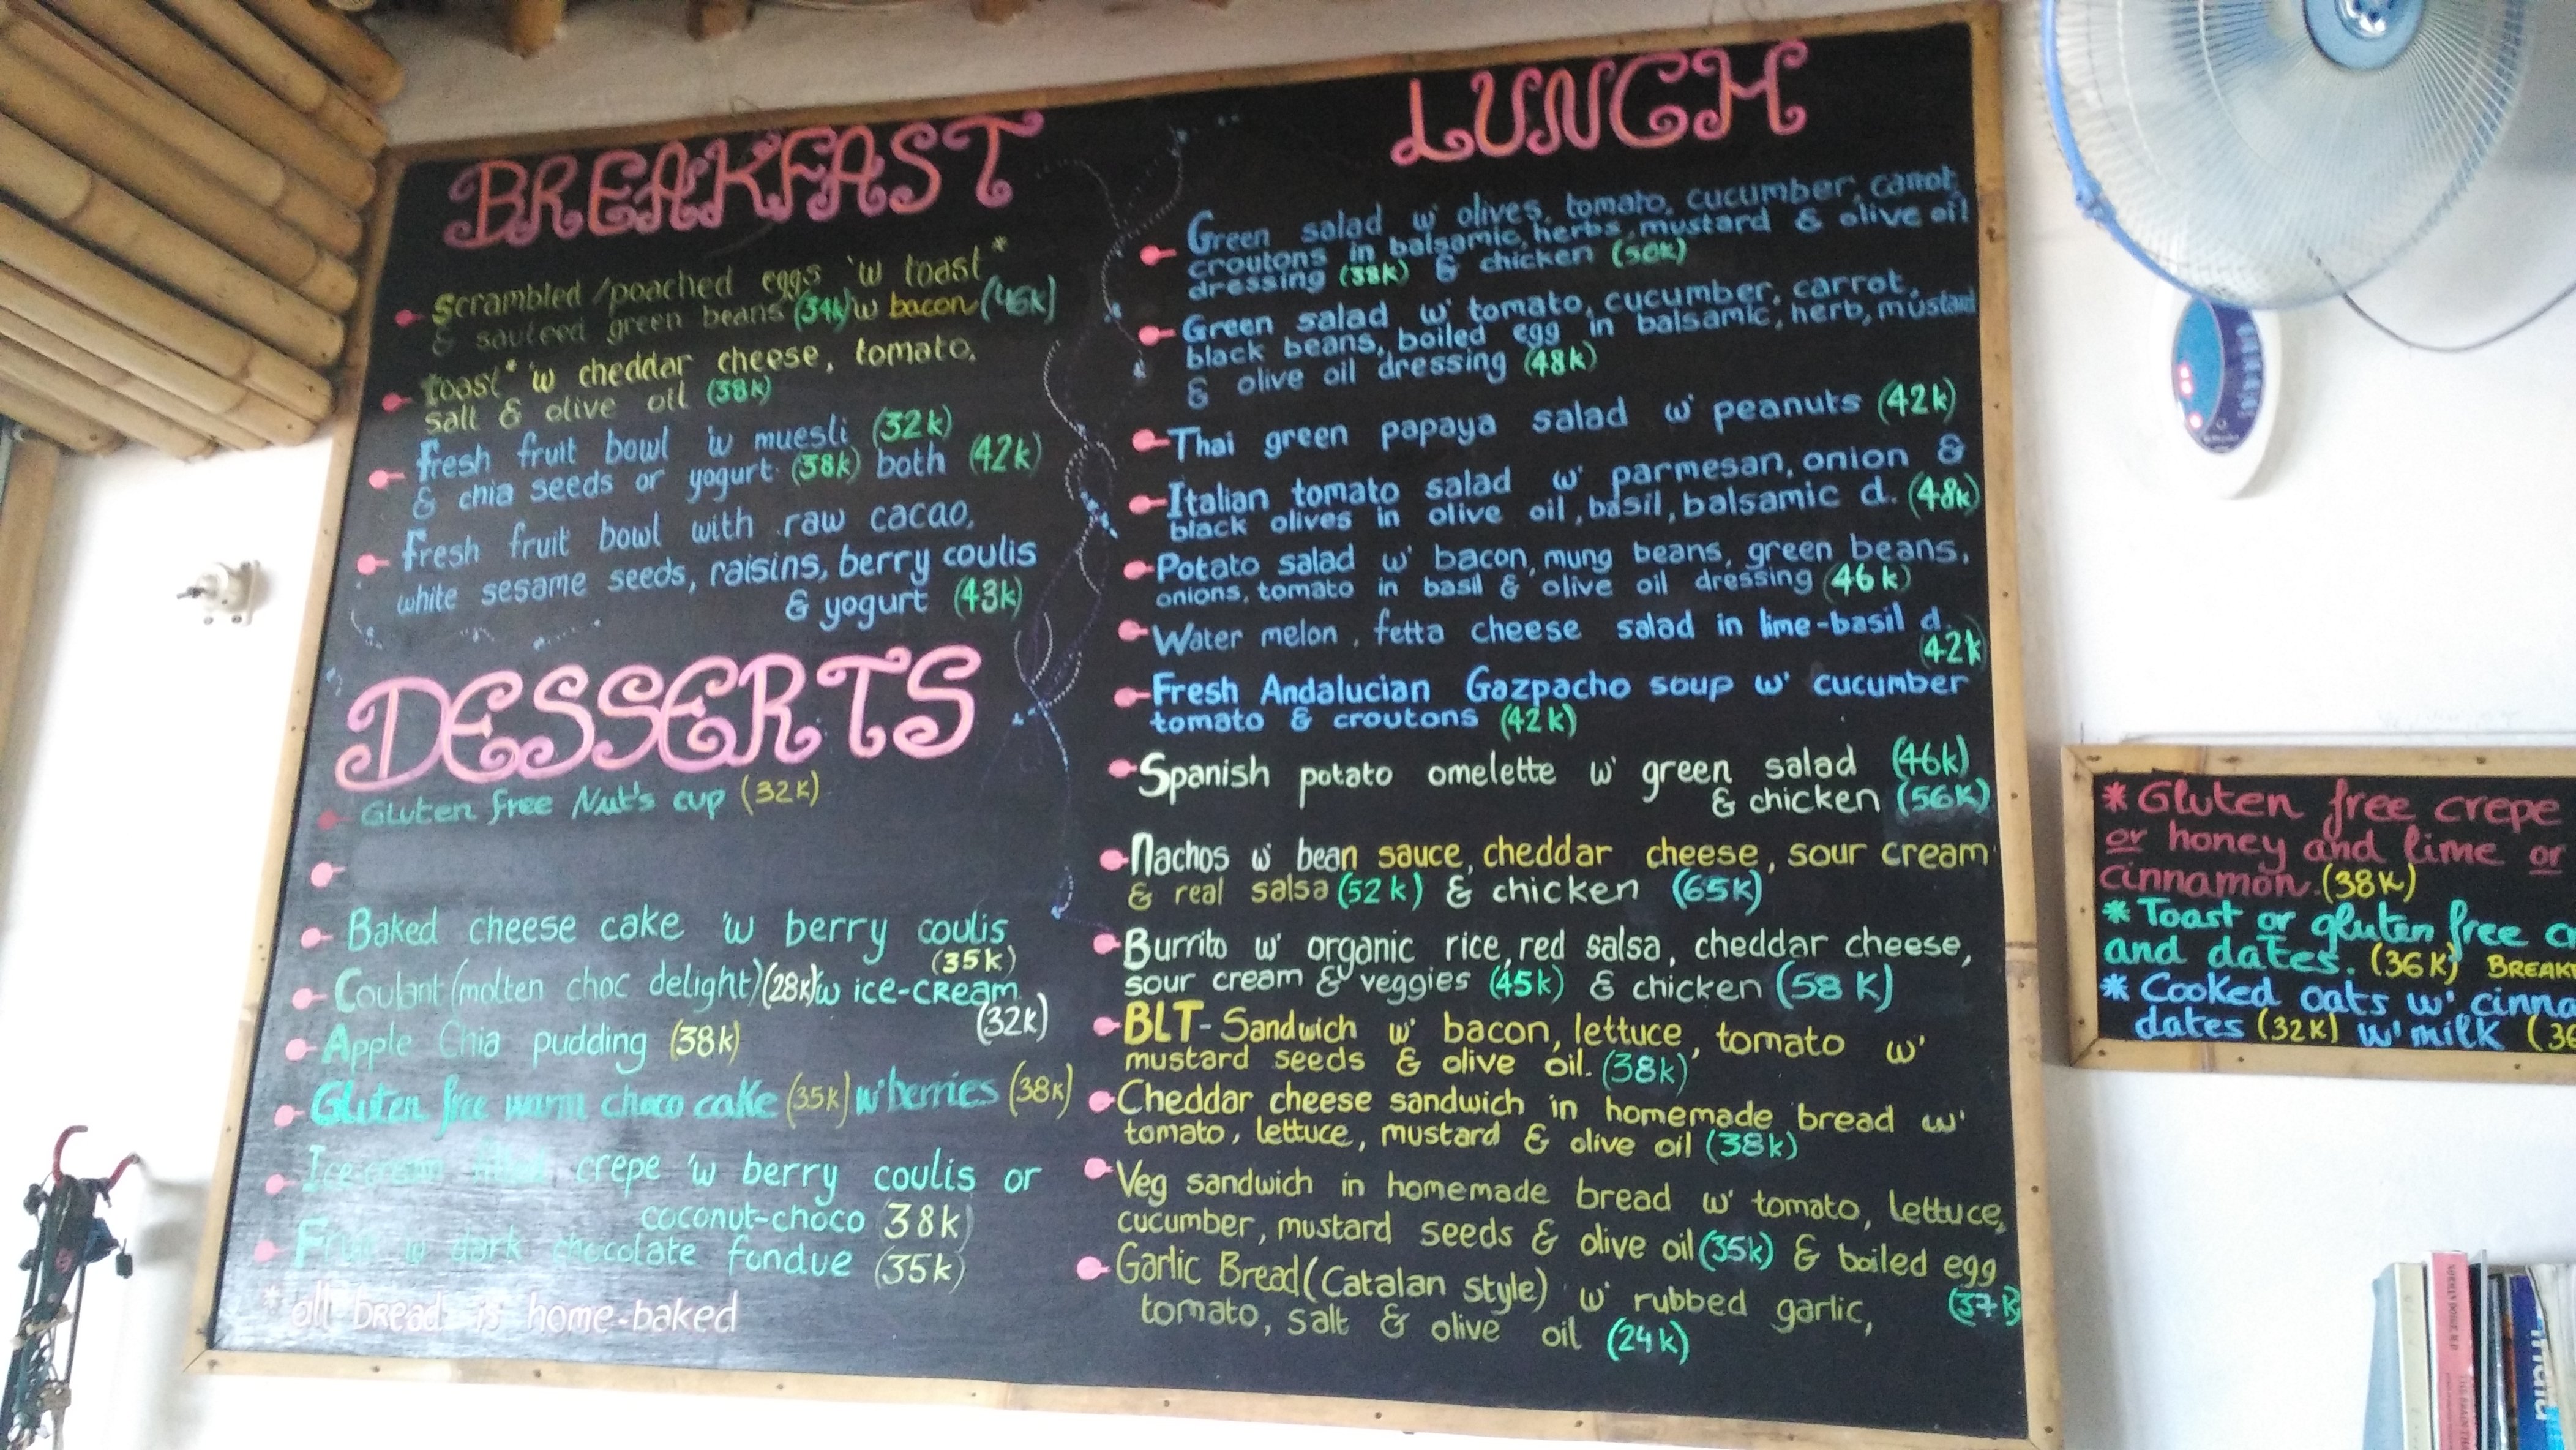 BREAKFAST
Scrambled/poached eggs 'w toast*
& sauteed green beans (34k) w bacon (46k)
toast* 'w cheddar cheese, tomato,
salt & olive oil (38k)
Fresh fruit bowl 'w muesli (32k)
& chia seeds or yogurt (38k) both (42k)
Fresh fruit bowl with raw cacao,
white sesame seeds, raisins, berry coulis
& yogurt (43k)
DESSERTS
Gluten free Nut's cup (32K)
Baked cheese cake 'w berry coulis
(35k)
Coulant (molten choc delight) (28k) 'w ice-cream
(32k)
Apple Chia pudding (38k)
Gluten free warm choco cake (35k) w' berries (38k)
Ice-cream filled crepe 'w berry coulis or
coconut-choco 38k)
Fruit w dark chocolate fondue (35k)
* all bread is home-baked
LUNCH
Green salad w' olives, tomato, cucumber, carrot,
croutons in balsamic, herbs, mustard & olive oil
dressing (38k) & chicken (50k)
Green salad w' tomato, cucumber, carrot,
black beans, boiled egg in balsamic, herb, mustard
& olive oil dressing (48k)
Thai green papaya salad w' peanuts (42k)
Italian tomato salad w' parmesan, onion &
black olives in olive oil, basil, balsamic d. (48k)
Potato salad w' bacon, mung beans, green beans,
onions, tomato in basil & olive oil dressing (46k)
Water melon, fetta cheese salad in lime-basil d.
(42k
Fresh Andalucian Gazpacho soup w' cucumber
tomato & croutons (42k)
Spanish potato omelette w' green salad (46k)
& chicken (56K)
Nachos w' bean sauce, cheddar cheese, sour cream
& real salsa (52k) & chicken (65K)
Burrito w' organic rice, red salsa, cheddar cheese,
sour cream & veggies (45k) & chicken (58 K)
BLT - Sandwich w' bacon, lettuce, tomato w'
mustard seeds & olive oil. (38k)
Cheddar cheese sandwich in homemade bread w'
tomato, lettuce, mustard & olive oil (38k)
Veg sandwich in homemade bread w' tomato, lettuce,
cucumber, mustard seeds & olive oil (35k) & boiled egg
(37k
Garlic Bread (Catalan Style) 'w' rubbed garlic,
tomato, salt & olive oil (24k)
* Gluten free crepe
or honey and lime or
cinnamon. (38K)
* Toast or gluten free
and dates. (36K) BREAK
* Cooked oats w' cinna
dates (32K) w' milk (36